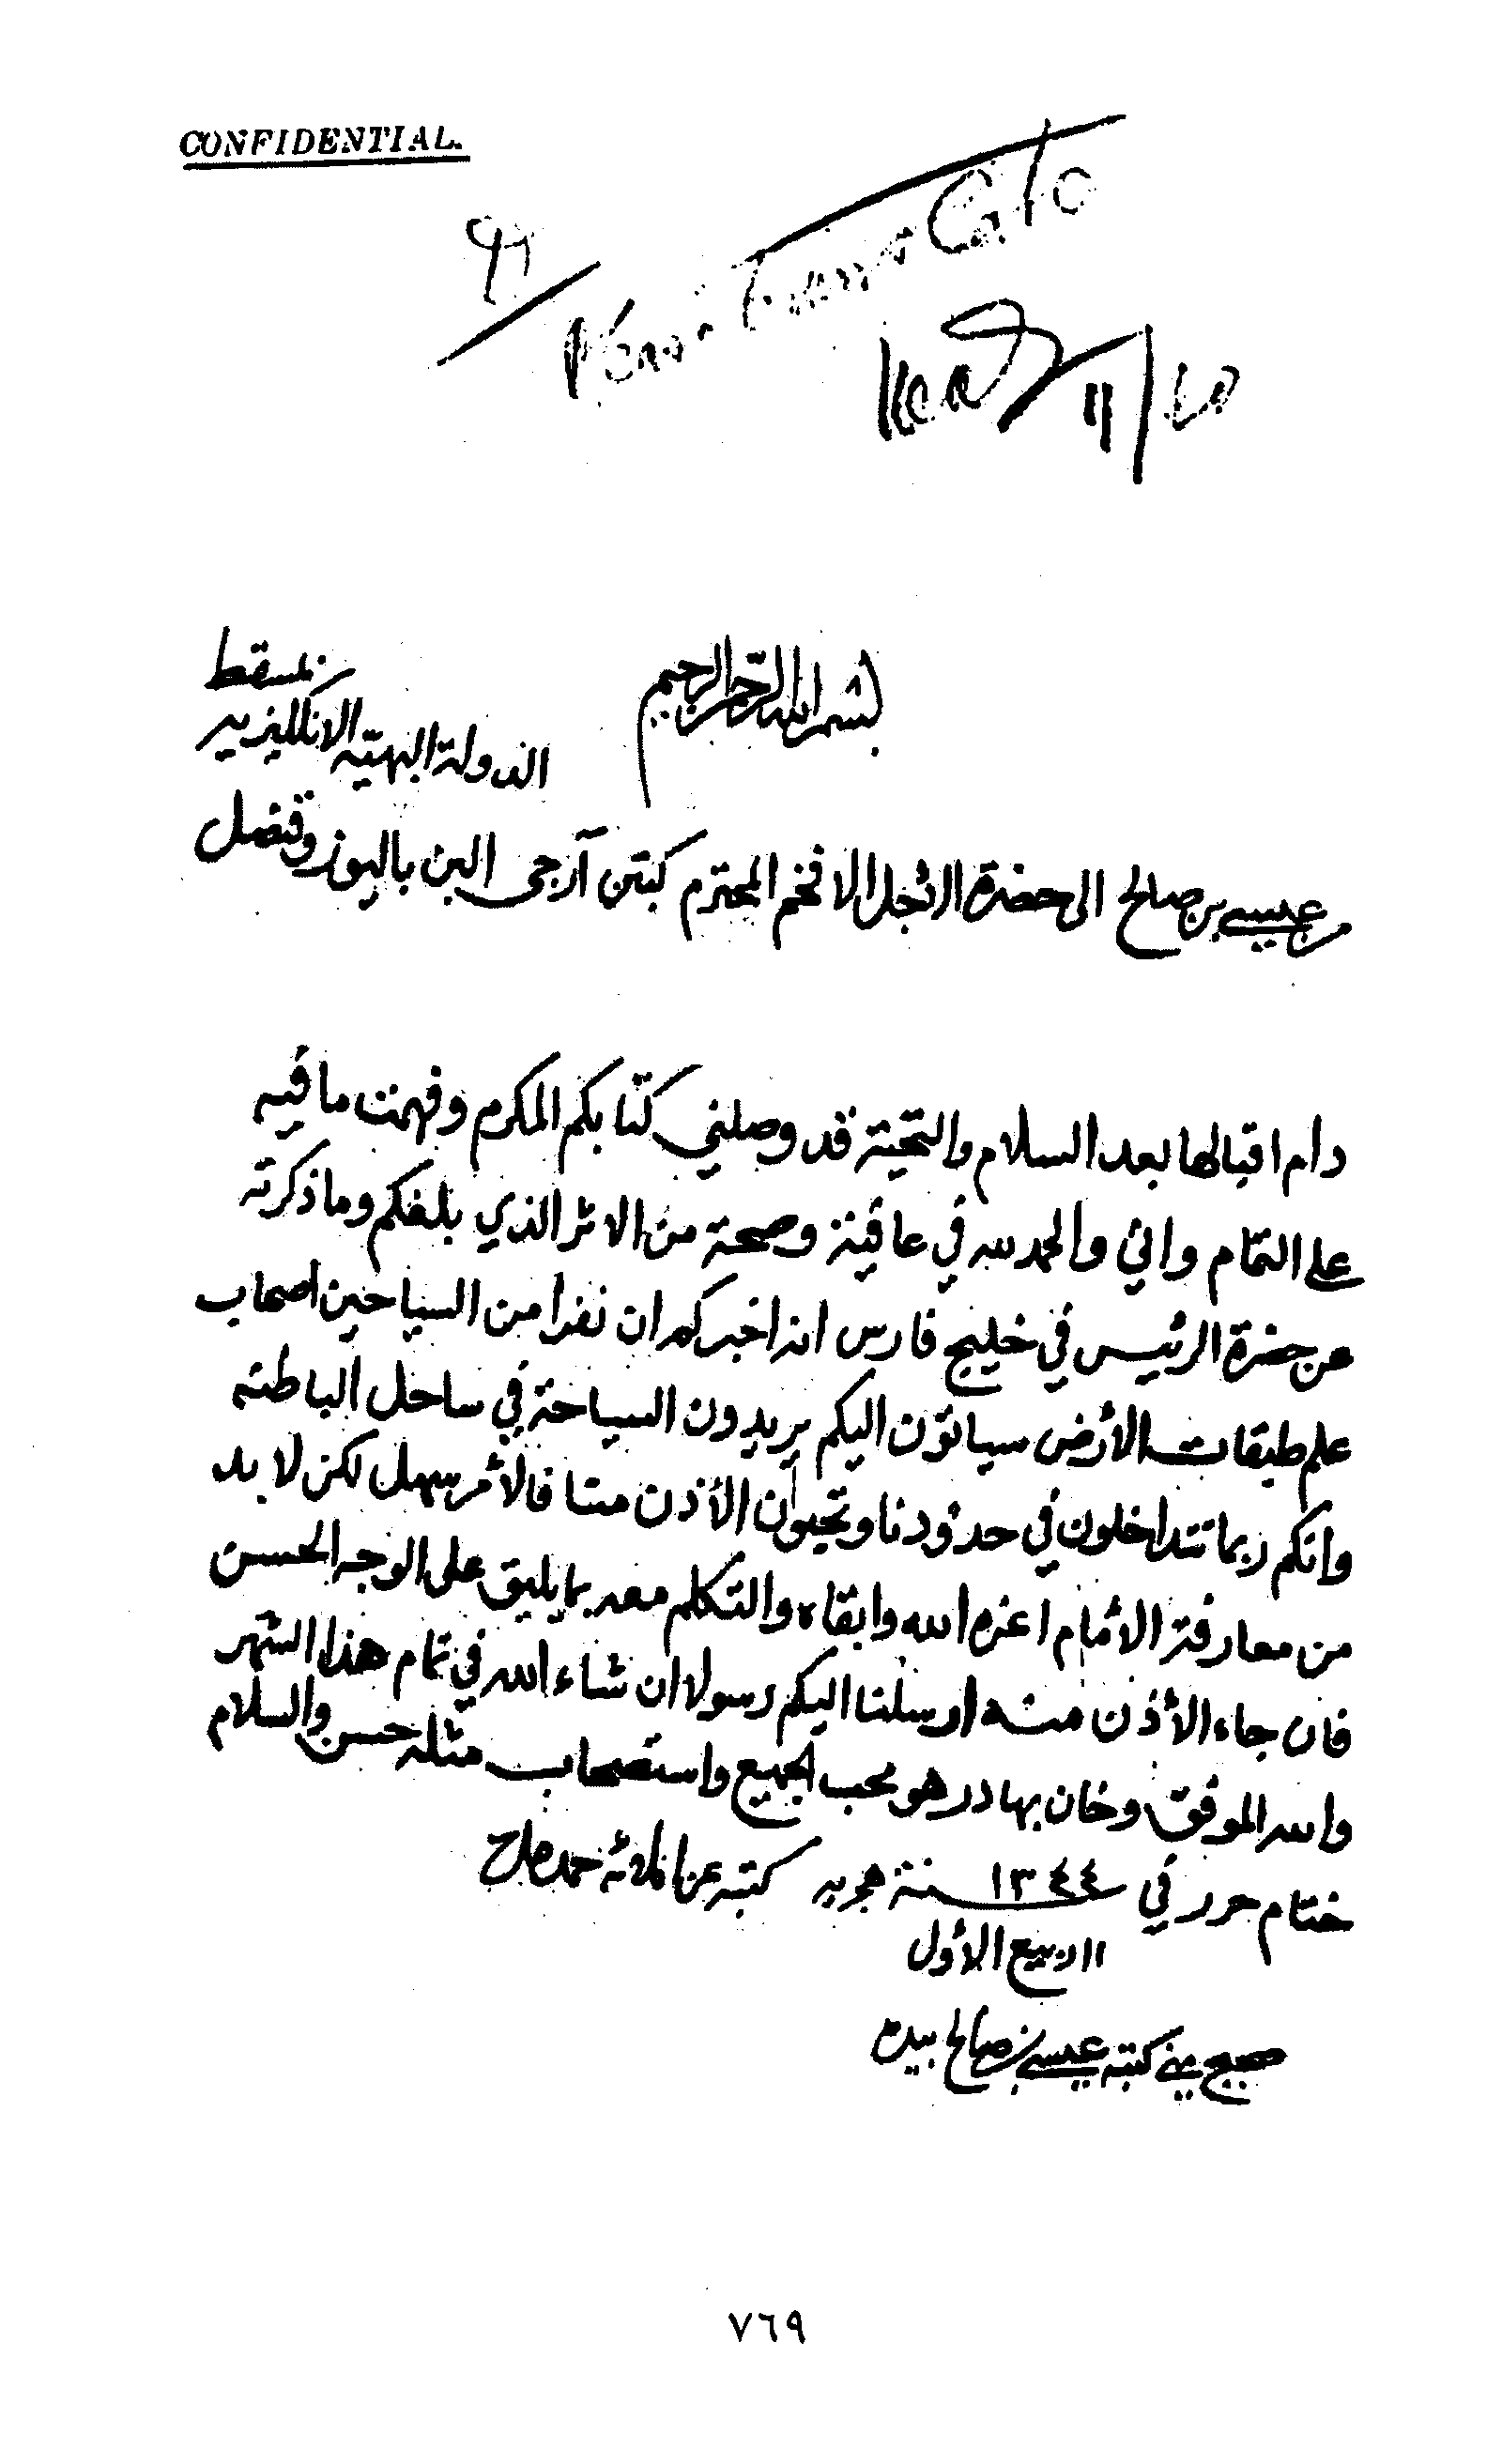 CONFIDENTIAL.
بسم الله الرحمن الرحيم
بمسقط
الدولة البهية الانكليزيه
من عيسى بن صالح الى حضرة الأجل الافخم المحترم كبتن آرجى البن باليوز وقنصل
دام اقبالها بعد السلام والتحية قد وصلني كتابكم المكرم وفهمت ما فيه
على التمام واني والحمد لله في عافية وصحة من الاثر الذي بلغكم وما ذكرته
عن حضرة الرئيس في خليج فارس انه اخبركم ان نفرا من السياحين اصحاب
علم طبقات الأرض سيأتون اليكم يريدون السياحة في ساحل الباطنه
وانكم ربما تتداخلون في حدودنا وتحبون الأذن منا فالأمر سهل لكن لا بد
من معارفة الأمام اعزه الله وابقاه والتكلم معه بما يليق على الوجه الحسن
فان جاء الأذن منه ارسلنا اليكم رسولا ان شاء الله في تمام هذا الشهر
والله الموفق وخان بهادر هو محب الجميع واستصحاب مثله حسن والسلام
ختام حرر في سنة ١٣٤٤ هجريه كتبه عن
١١ ربيع الأول
صحيح مني كتبه عيسى بن صالح بيده
٧٦٩